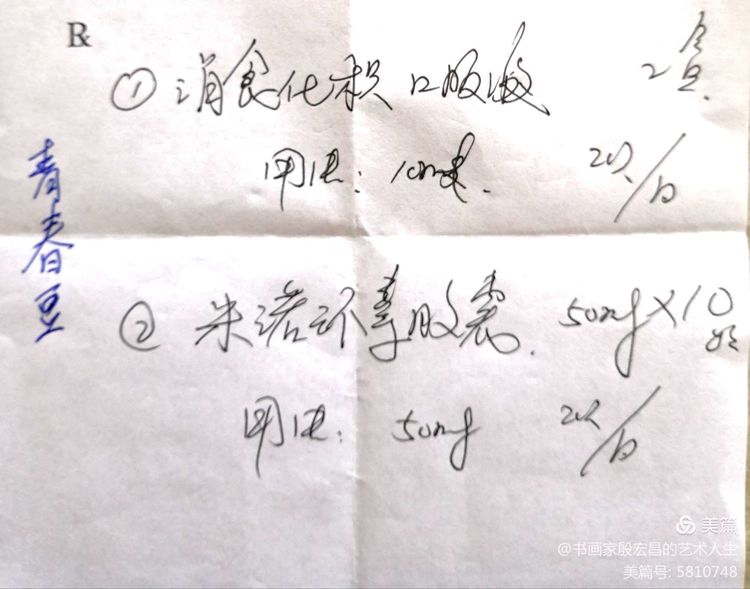 Rx
① 消食化积口服液 2盒
用法: 10ml. 2次/日
青春豆
② 米诺环素胶囊. 50mg×10
用法: 50mg 2次/日
美篇
@书画家殷宏昌的艺术人生
美篇号: 5810748